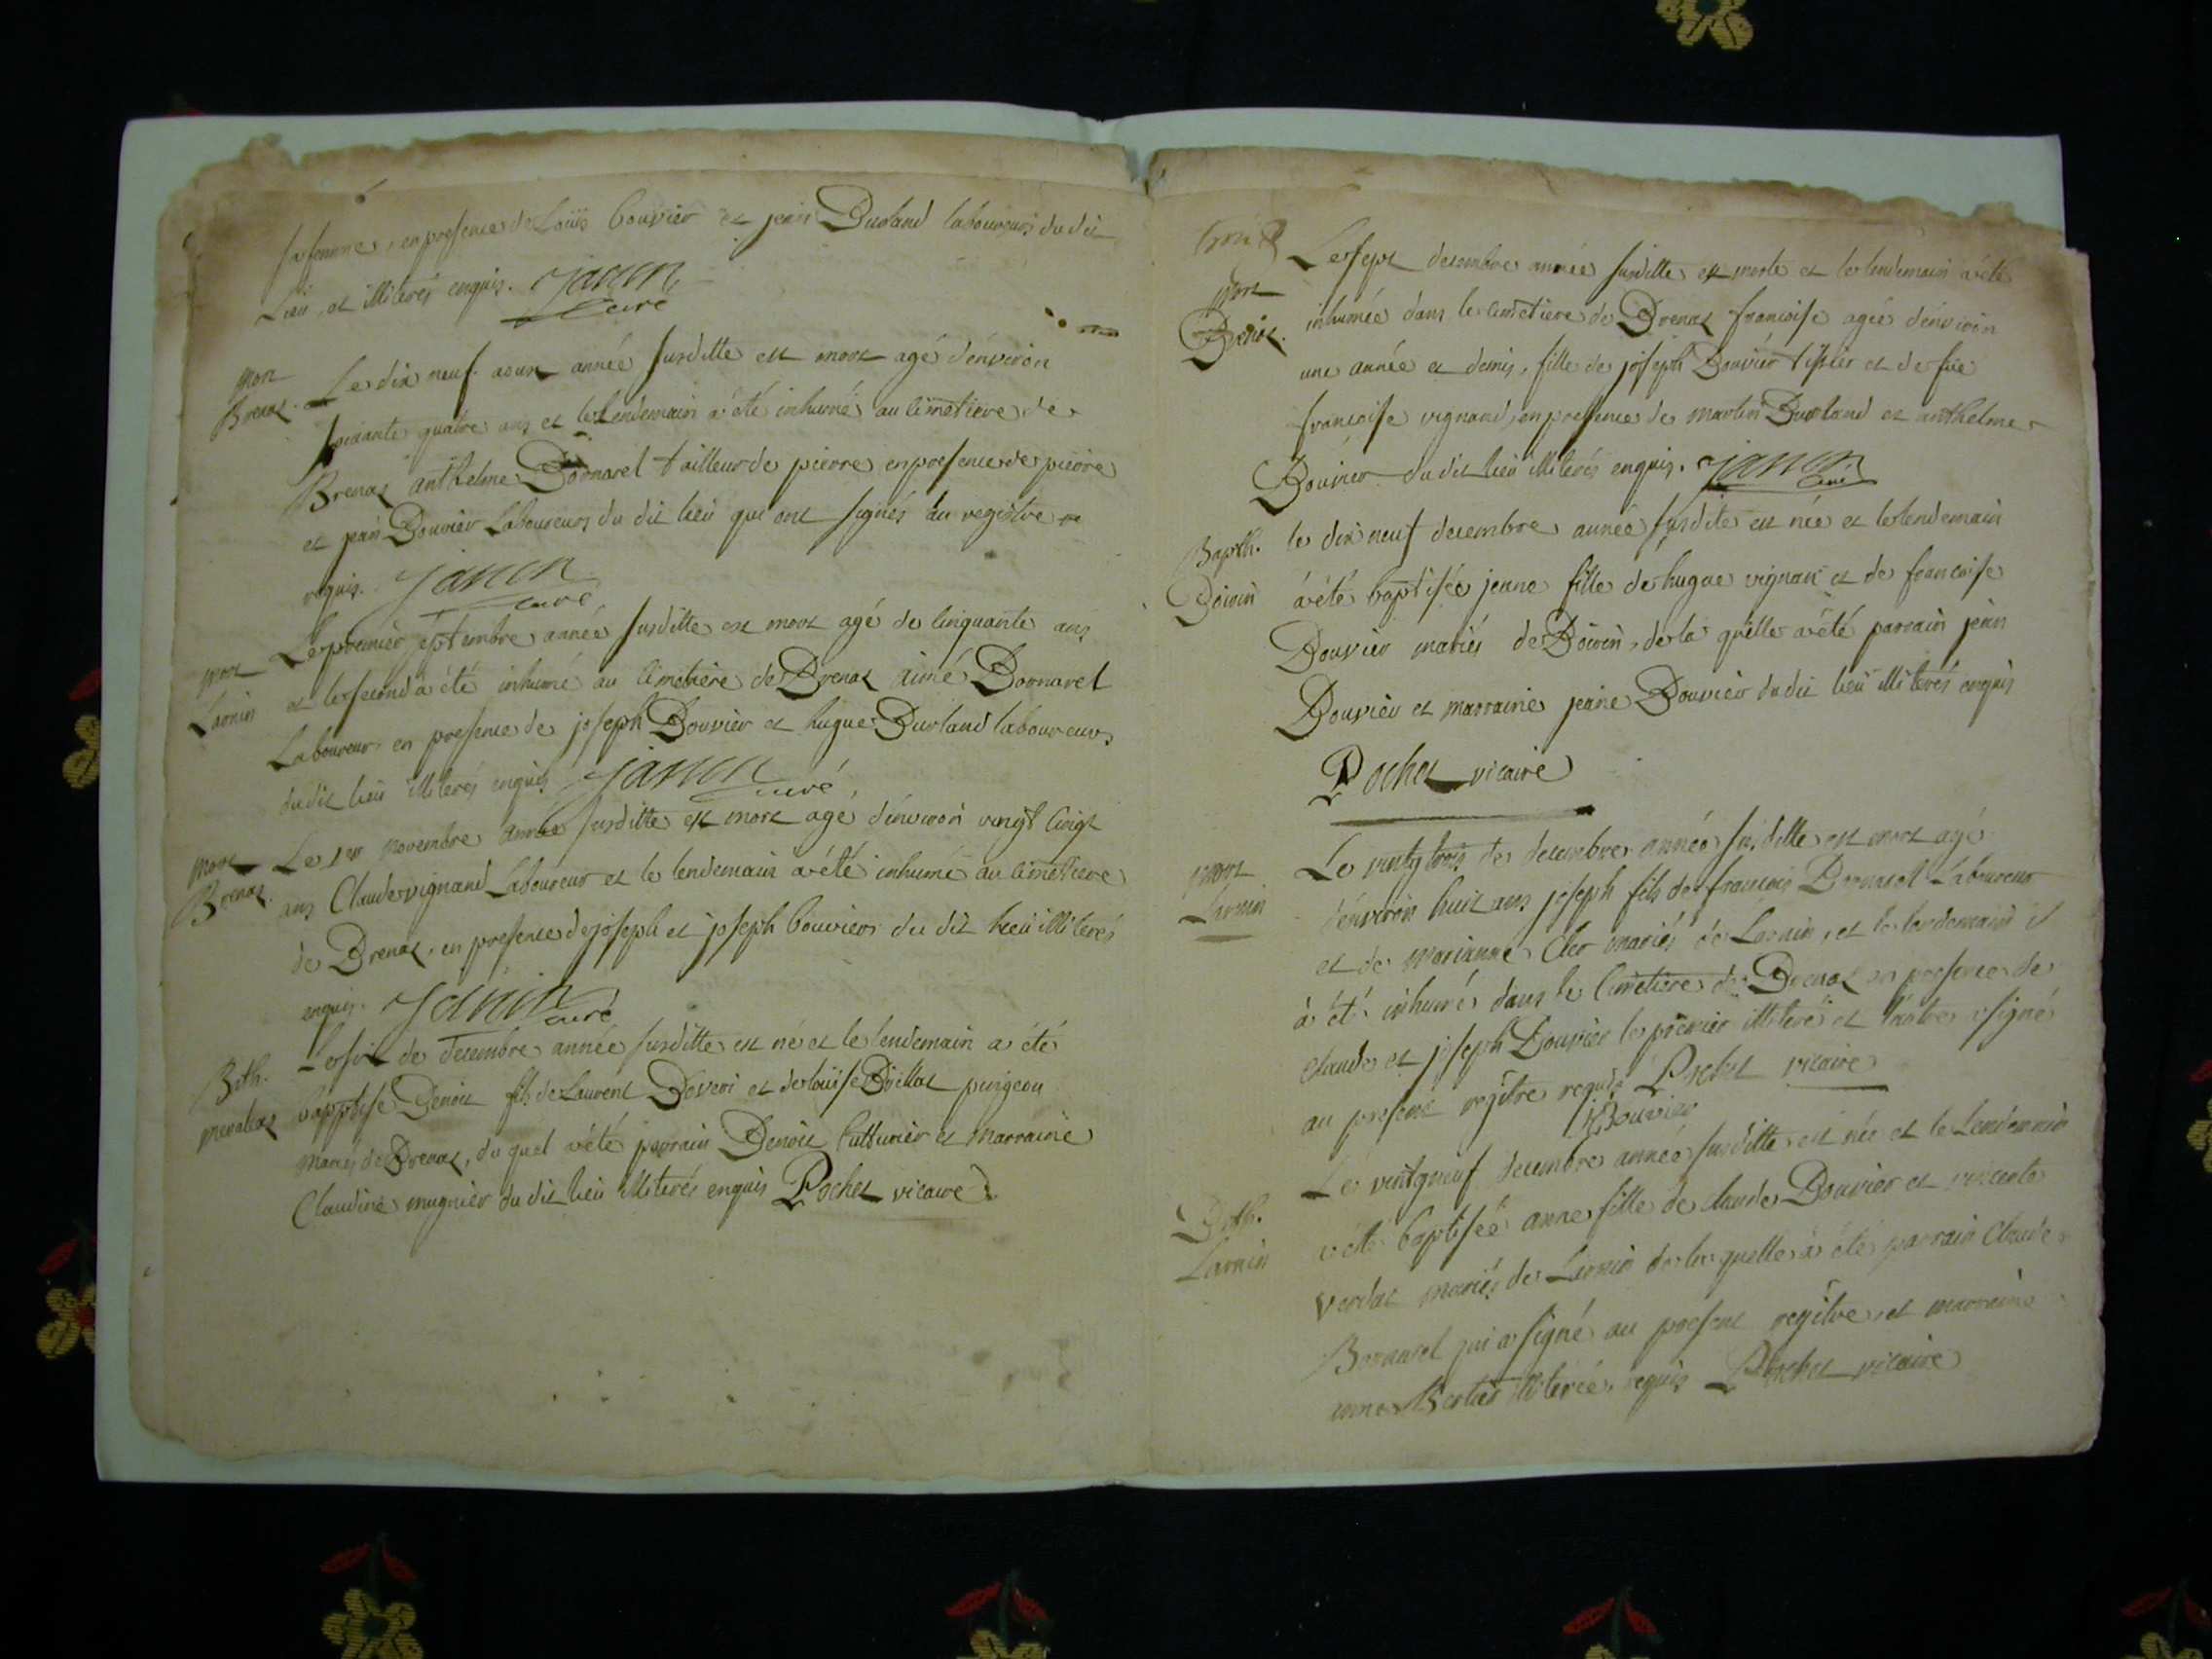 sa femme, en presence de Loüis Bouvier et jean Durland laboureurs du dit
Lieu, et illiterés enquis. Janin
curé
mort
Brenaz. Le dix neuf aoust année susditte est mort agé d'énviron
soixante quatre ans et le lendemain a été inhumé au cimetiere de
Brenaz anthelme Bornarel tailleur de pierre en presence de pierre
et jean Bouvier Laboureurs du dit lieu qui ont signés au registre
requis. Janin
curé
mort
Larnin
Le premier septembre année susditte est mort agé de cinquante ans
et le second a été inhumé au cimetiere de Brenaz aimé Bornarel
Laboureur en presence de joseph Bouvier et hugue Durland laboureurs
dudit lieu illiterés enquis Janin
curé
mort
Brenaz.
Le 1er novembre année susditte est mort agé d'énviron vingt cinq
ans Claude vignand Laboureur et le lendemain a été inhumé au cimetiere
de Brenaz, en presence de joseph et joseph bouviers du dit lieu illiterés
enquis. Janin
curé
Bth.
Le six de decembre année susditte est né et le lendemain a été
baptisé Benoit fils de Laurent et de loüise
mariés de Brenaz, du quel a été parrain Benoit et marraine
Claudine mugnier du dit lieu illiterés enquis Pochet vicaire
mort
Le sept decembre année susditte est morte et le lendemain a été
inhumée dans le cimetiere de Brenaz francoise agée d'énviron
une année et demis, fille de joseph Bouvier et de füe
francoise vignand, en presence de martin Durland et anthelme
Bouvier du dit lieu illiterés enquis. Janin
curé
Bapth.
Boivin
le dix neuf decembre année susdite est née et le lendemain
a été baptisée jeanne fille de hugue vignan et de francoise
Bouvier mariés de Boivin, de la quelle a été parrain jean
Bouvier et marraine jeane Bouvier du dit lieu illiterés enquis
Pochet vicaire
mort
Larnin
Le vintg trois de decembre année susditte est mort agé
d'énviron huit ans joseph fils de francois Bornarel Laboureur
et de marianne mariés de Larnin, et le lendemain il
à été inhumé dans le cimetiere de Brenaz en presence de
claude et joseph Bouvier le premier illiteré et l'autre a signé
au present regitre requis Pochet vicaire
Bouvier
Bth.
Larnin
Le vintg neuf decembre année susditte est née et le Lendemain
a été baptisée anne fille de claude Bouvier et
mariés de Larnin de la quelle à été parrain Claude
Bornarel qui a signé au present regitre, et marraine
anne illiterée, requis Pochet vicaire